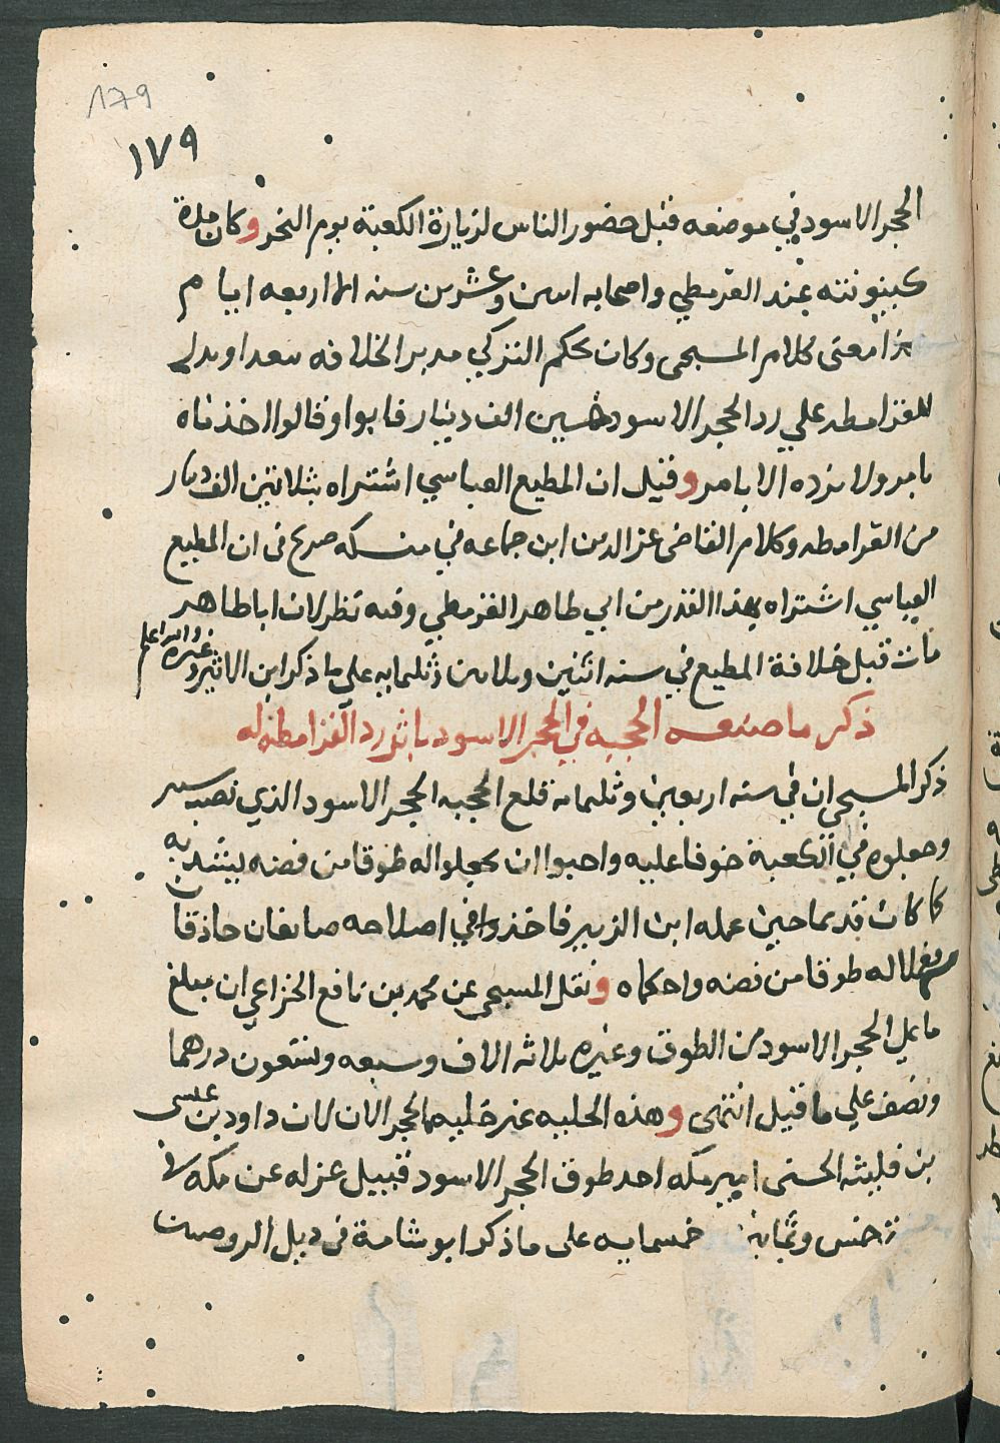 179
١٧٩
الحجر الاسود في موضعه قبل حضور الناس لزيارة الكعبة يوم النحر وكان مدة
كينونته عند القرمطي واصحابه اسن وعشرىن سنه الا اربعه ايام
هذا معنى كلام المسبحى وكان بحكم التركي مدبر الخلافه ببغداد بدل
للقرامطه على رد الحجر الاسود خمسين الف دينار فابوا وقالوا اخذناه
بامر ولا نرده الا بامر وقيل ان المطيع العباسي اشتراه بثلاثين الف دىنار
من القرامطه وكلام القاضى عز الدين ابن جماعه في منسكه صريح فى ان المطيع
العباسي اشتراه بهذا القدر من ابي طاهر القرمطي وفيه نظر لان ابا طاهر
مات قبل خلافة المطيع في سنه اثنين وثلاثين وثلثمايه على ما ذكر ابن الاثير وغيره والله اعلم
ذكر ما صنعه الحجبه في الحجر الاسود باثر رد القرامطه له
ذكر المسبحى ان في سنه اربعين وثلثمائه قلع الحجبه الحجر الاسود الذي نصبه سىر
وجعلوه في الكعبة خوفا عليه واحبوا ان يجعلوا له طوقا من فضه يشد به
كما كان قديما حين عمله ابن الزبير فاخذوا في اصلاحه صايغان حاذقان
فعملا له طوقا من فضه واحكماه ونقل المسبحى عن محمد بن نافع الخزاعي ان مبلغ
ما على الحجر الاسود من الطوق وغيره ثلاثه الاف وسبعه وتسعون درهما
ونصف على ما قيل انتهى وهذه الحليه غير حليه الحجر الان لان داود بن عيسى
بن فليته الحسنى امير مكه اخذ طوق الحجر الاسود قبيل عزله عن مكه فى
سنة خمس وثمانين خمسمايه على ما ذكر ابو شامة فى ذيل الروضتين